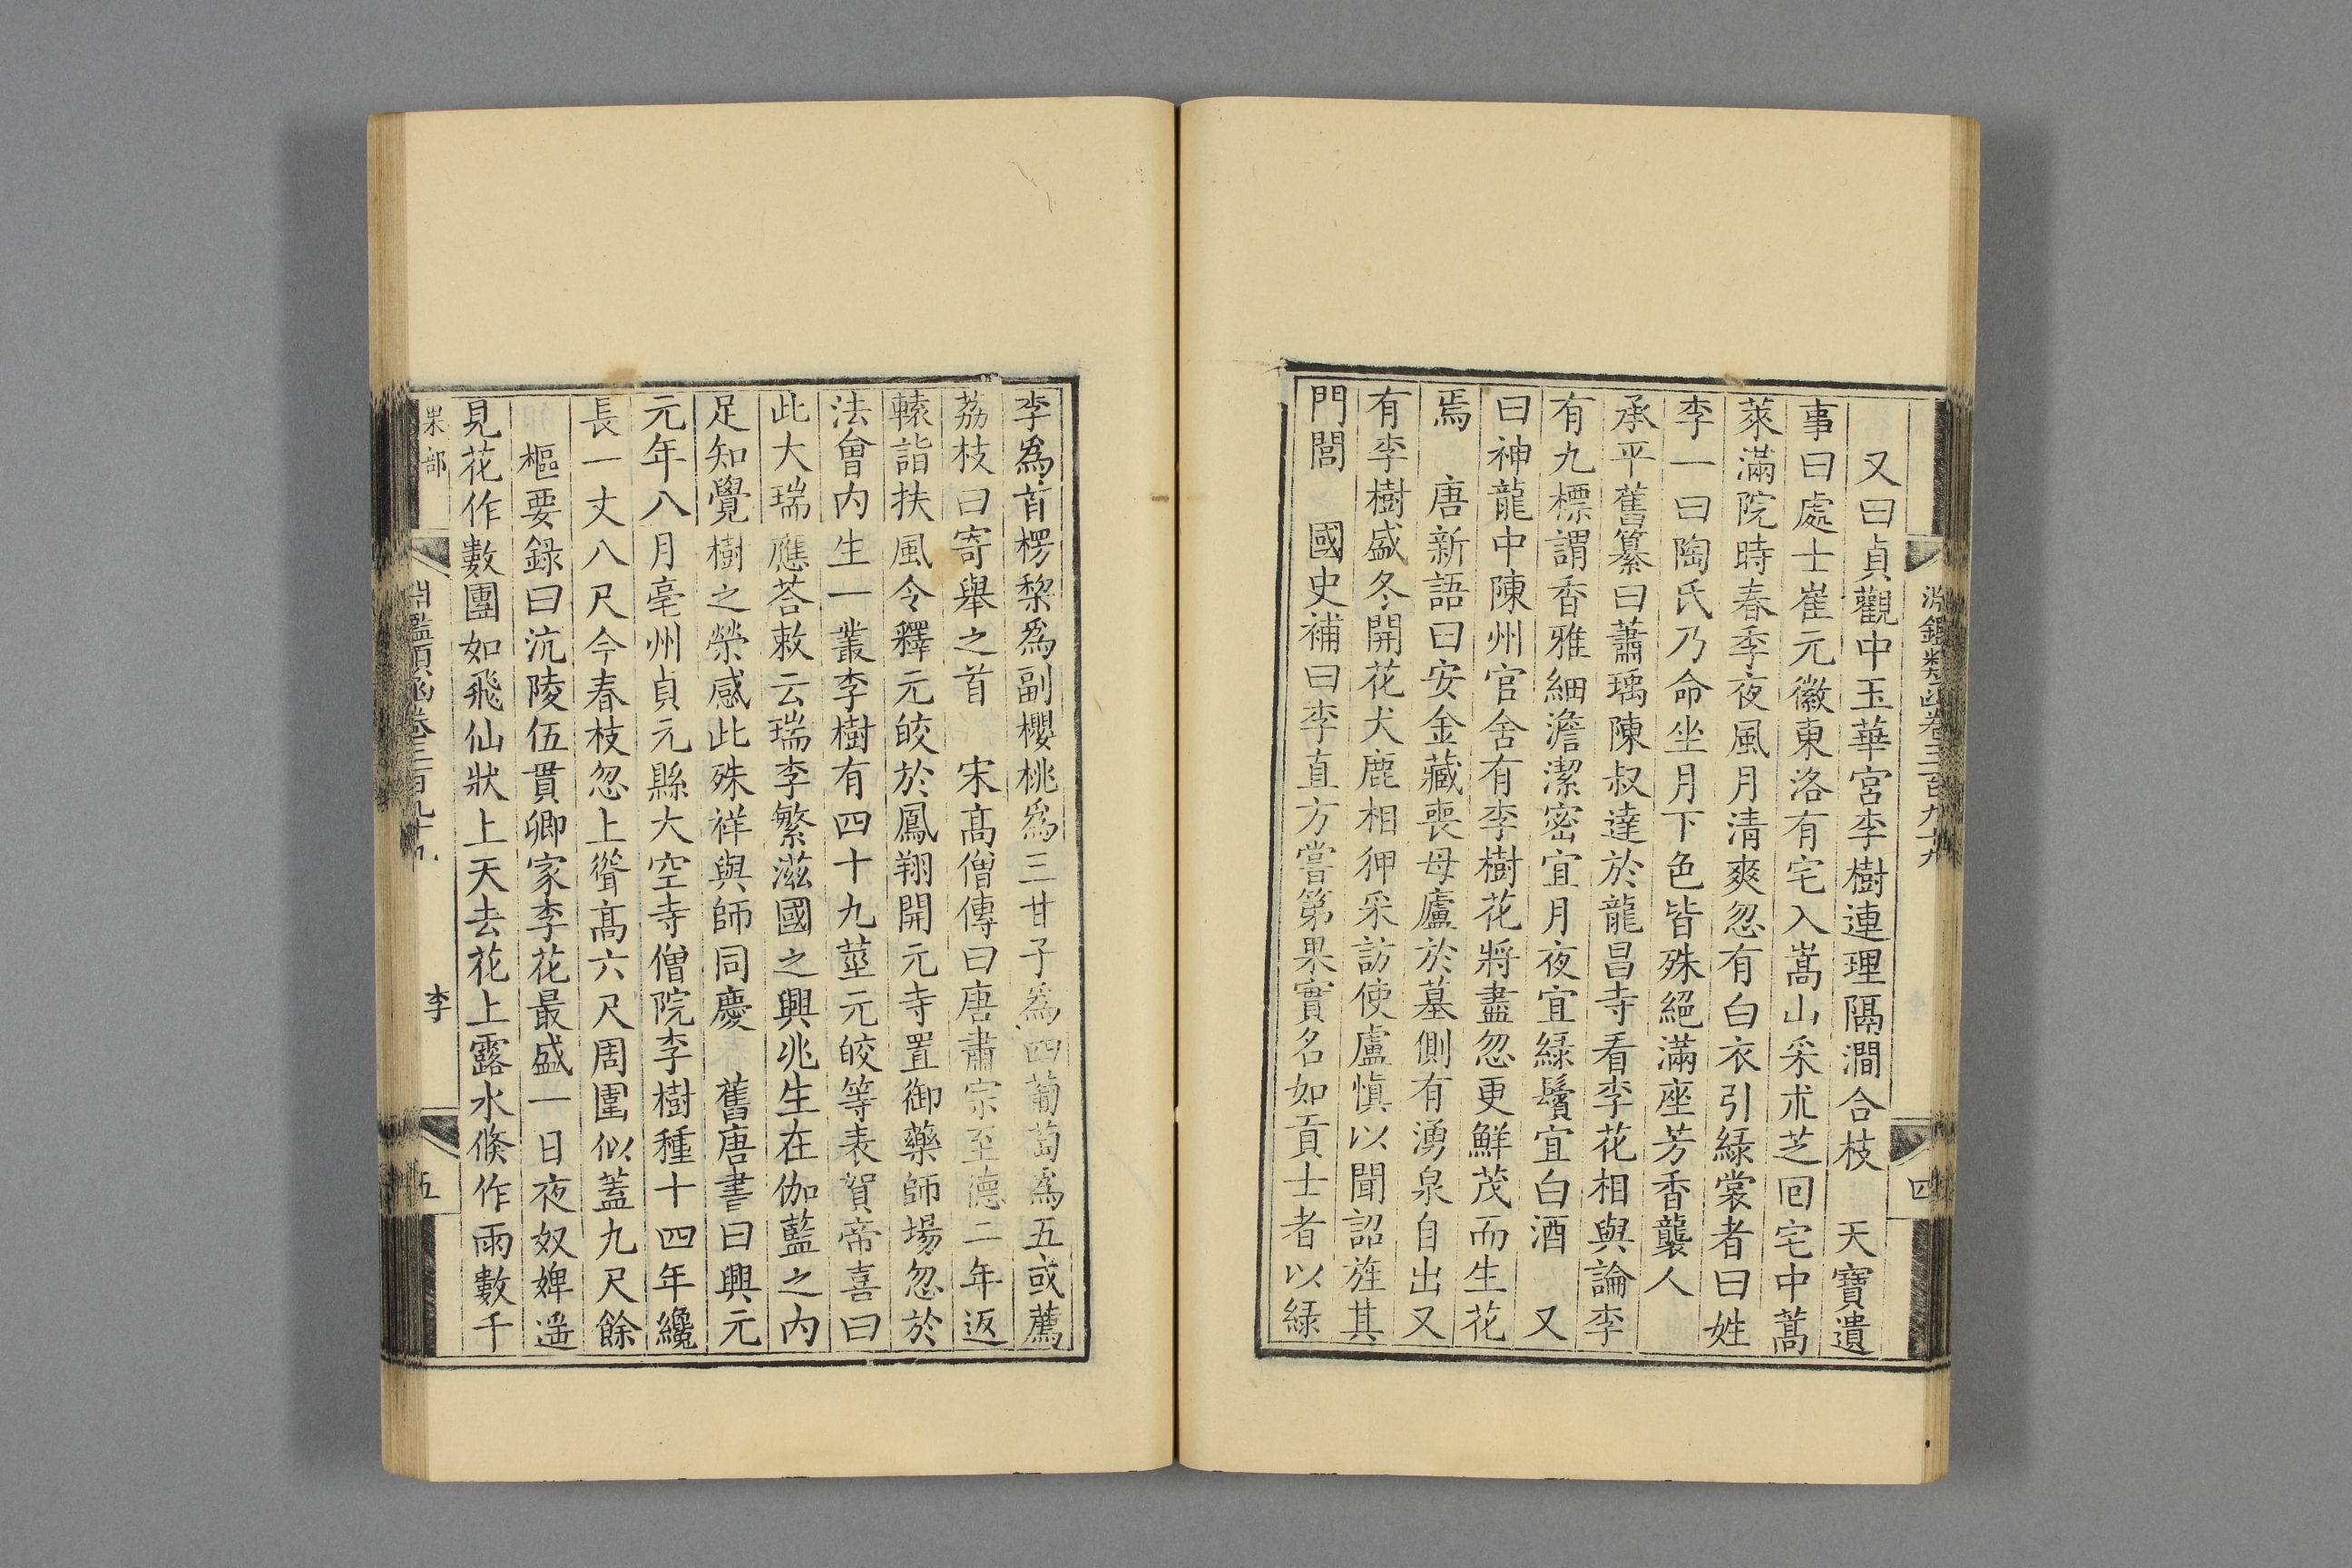 淵鑑類函卷三百九十九
四
又曰貞觀中玉華宮李樹連理隔澗合枝　天寶遺
事曰處士崔元徽東洛有宅入嵩山采朮芝囘宅中蒿
萊滿院時春季夜風月清爽忽有白衣引緑裳者曰姓
李一曰陶氏乃命坐月下色皆殊絕滿座芳香襲人
承平舊纂曰蕭瑀陳叔達於龍昌寺看李花相與論李
有九標謂香雅細澹潔密宜月夜宜緑鬢宜白酒　又
曰神龍中陳州官舍有李樹花將盡忽更鮮茂而生花
焉　唐新語曰安金藏喪母廬於墓側有湧泉自出又
有李樹盛冬開花犬鹿相狎采訪使盧慎以聞詔旌其
門閭　國史補曰李直方嘗第果實名如貢士者以緑
李爲首楞棃爲副櫻桃爲三甘子爲四葡萄爲五或薦
荔枝曰寄舉之首　宋高僧傳曰唐肅宗至德二年返
轅詣扶風令釋元皎於鳳翔開元寺置御藥師場忽於
法會内生一叢李樹有四十九莖元皎等表賀帝喜曰
此大瑞應荅敕云瑞李繁滋國之興兆生在伽藍之内
足知覺樹之榮感此殊祥與師同慶　舊唐書曰興元
元年八月亳州貞元縣大空寺僧院李樹種十四年纔
長一丈八尺今春枝忽上聳高六尺周圍似蓋九尺餘
樞要録曰沆陵伍貫卿家李花最盛一日夜奴婢遥
見花作數團如飛仙狀上天去花上露水倐作雨數千
果部
淵鑑類函卷三百九十九
李
五